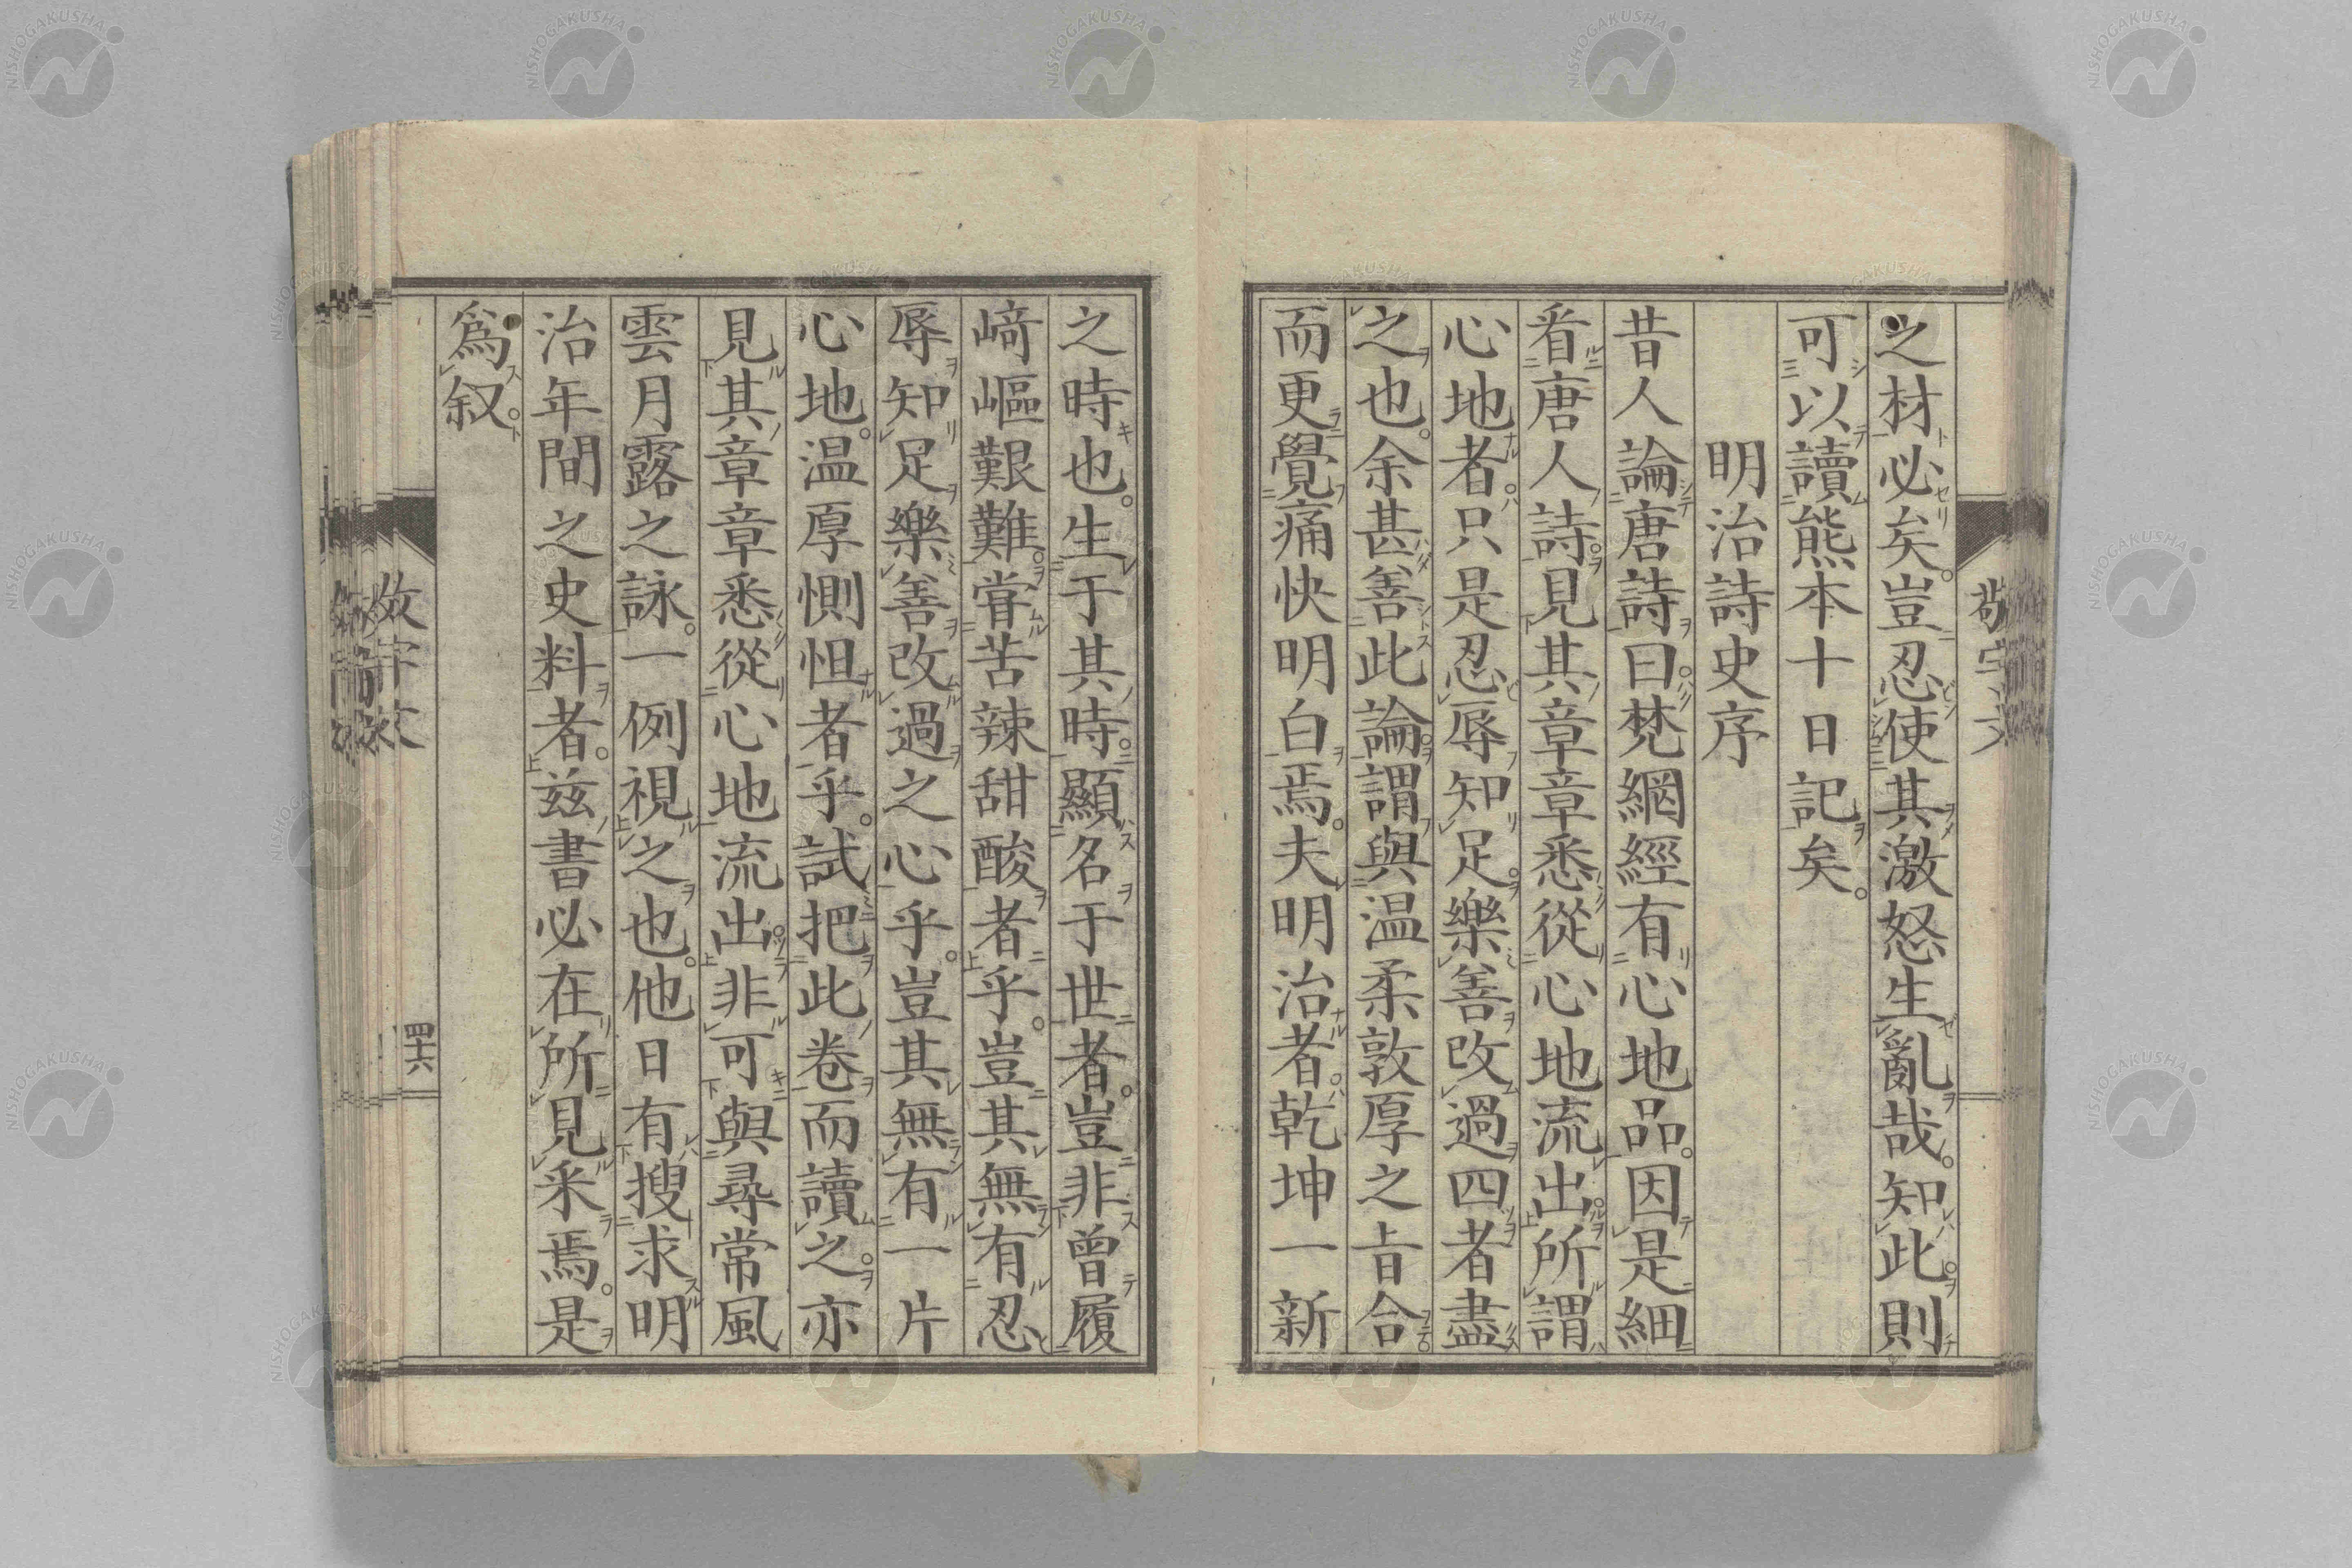 之材必矣。豈忍使其激怒生亂哉。知此則
可以讀熊本十日記矣。
明治詩史序
昔人論唐詩曰梵網經有心地品。因是細
看唐人詩。見其章章悉從心地流出。所謂
心地者。只是忍辱知足。樂善改過四者盡
之也。余甚善此論。謂與温柔敦厚之旨合。
而更覺痛快明白焉。夫明治者。乾坤一新
之時也。生于其時。顯名于世者。豈非曾履
崎嶇艱難。嘗苦辣甜酸者乎。豈其無有忍
辱知足樂善改過之心乎。豈其無有一片
心地。温厚惻怛者乎。試把此卷而讀之。亦
見其章章悉從心地流出。非可與尋常風
雲月露之詠。一例視之也。他日有搜求明
治年間之史料者。兹書必在所見采焉。是
爲叙。
敬宇文
四十六